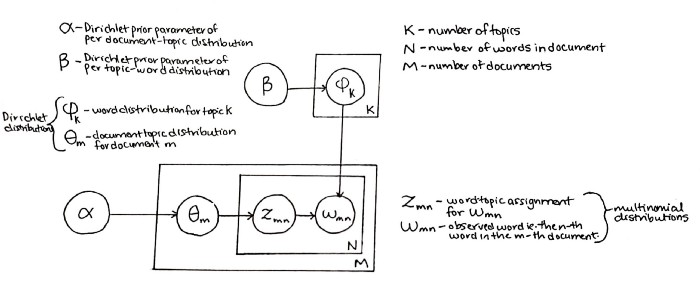 α - Dirichlet prior parameter of
per document-topic distribution
β - Dirichlet prior parameter of
per topic-word distribution
Dirichlet
distributions
φk - word distribution for topic k
θm - document topic distribution
for document m
K - number of topics
N - number of words in document
M - number of documents
β
φk
K
α
θm
Zmn
Wmn
N
M
Zmn - word topic assignment
for Wmn
Wmn - observed word ie. the n-th
word in the m-th document.
multinomial
distributions